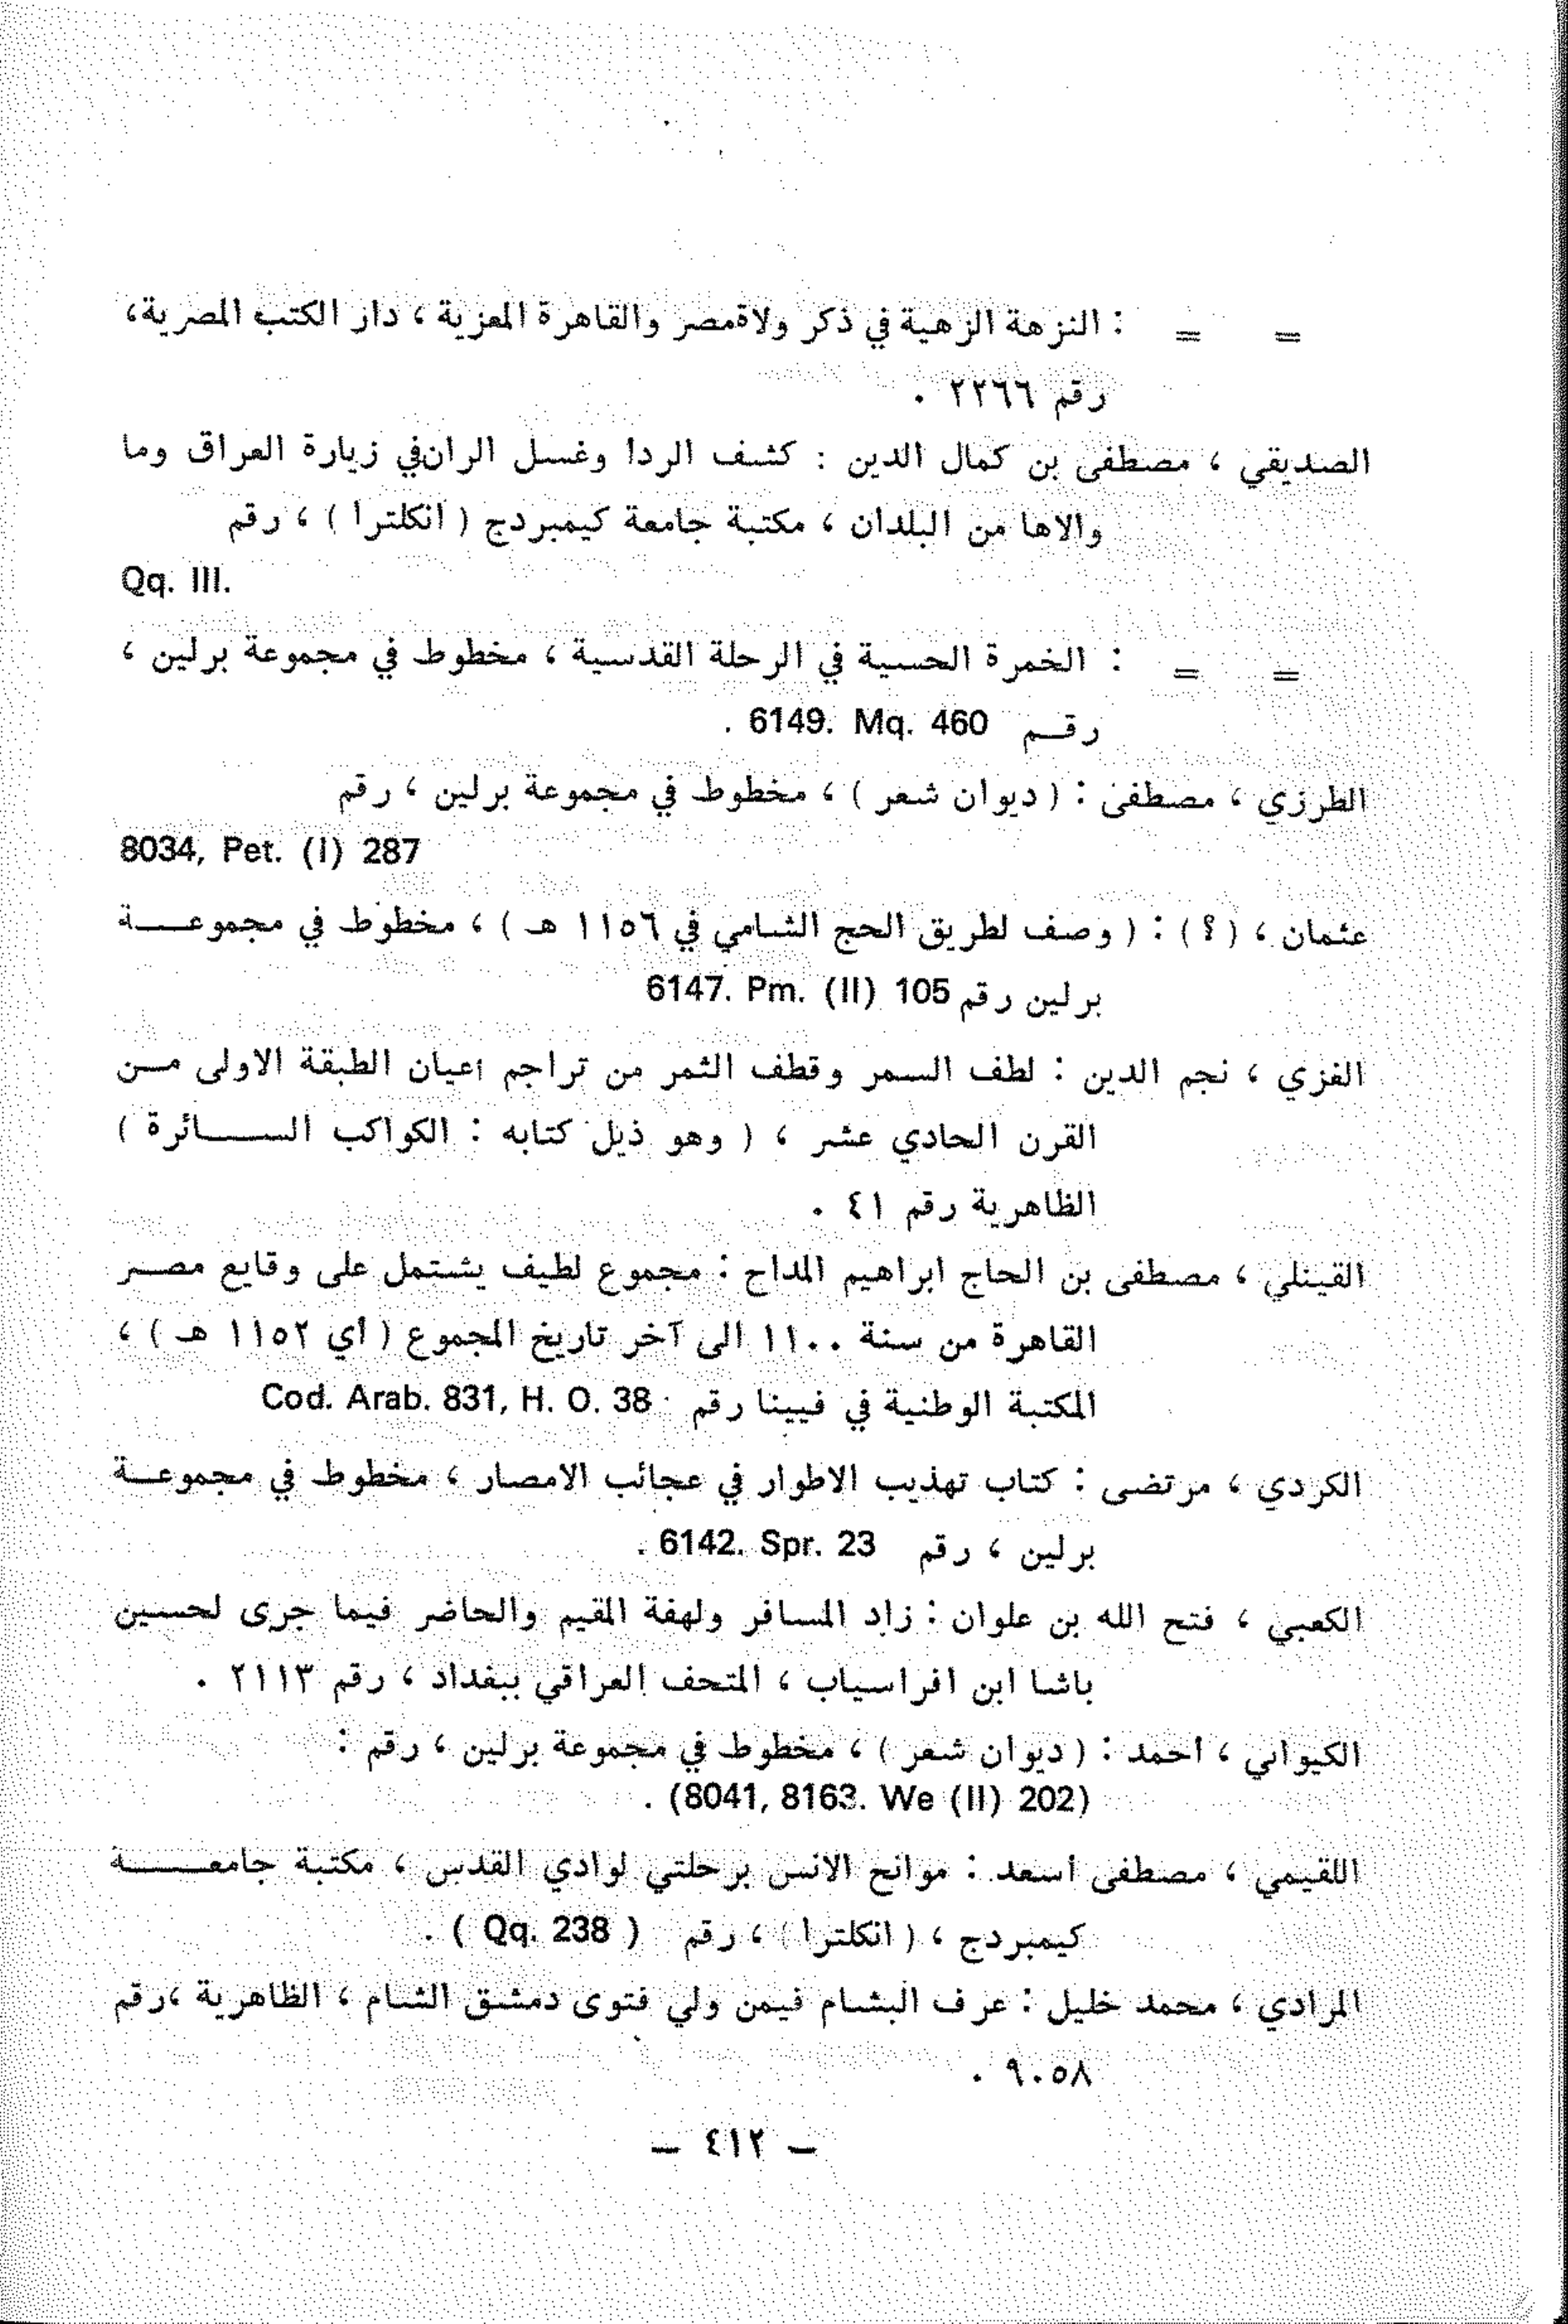 = = : النزهة الزهية في ذكر ولاةمصر والقاهرة المعزية ، دار الكتب المصرية،
رقم ٢٢٦٦ .
الصديقي ، مصطفى بن كمال الدين : كشف الردا وغسل الران في زيارة العراق وما
والاها من البلدان ، مكتبة جامعة كيمبردج ( انكلترا ) ، رقم
Qq. III.
= = : الخمرة الحسية في الرحلة القدسية ، مخطوط في مجموعة برلين ،
رقم 6149. Mq. 460 .
الطرزي ، مصطفى : ( ديوان شعر ) ، مخطوط في مجموعة برلين ، رقم
8034, Pet. (I) 287
عثمان ، (؟) : ( وصف لطريق الحج الشامي في ١١٥٦ هـ ) ، مخطوط في مجموعة
برلين رقم 6147. Pm. (II) 105
الغزي ، نجم الدين : لطف السمر وقطف الثمر من تراجم اعيان الطبقة الاولى من
القرن الحادي عشر ، ( وهو ذيل كتابه : الكواكب السائرة )
الظاهرية رقم ٤١ .
القينلي ، مصطفى بن الحاج ابراهيم المداح : مجموع لطيف يشتمل على وقايع مصر
القاهرة من سنة ١١٠٠ الى آخر تاريخ المجموع ( أي ١١٥٢ هـ ) ،
المكتبة الوطنية في فيينا رقم Cod. Arab. 831, H. O. 38
الكردي ، مرتضى : كتاب تهذيب الاطوار في عجائب الامصار ، مخطوط في مجموعة
برلين ، رقم 6142. Spr. 23 .
الكعبي ، فتح الله بن علوان : زاد المسافر ولهفة المقيم والحاضر فيما جرى لحسين
باشا ابن افراسياب ، المتحف العراقي ببغداد ، رقم ٢١١٣ .
الكيواني ، احمد : ( ديوان شعر ) ، مخطوط في مجموعة برلين ، رقم :
(8041, 8163. We (II) 202) .
اللقيمي ، مصطفى اسعد : موانح الانس برحلتي لوادي القدس ، مكتبة جامعة
كيمبردج ، ( انكلترا ) ، رقم ( Qq. 238 ) .
المرادي ، محمد خليل : عرف البشام فيمن ولي فتوى دمشق الشام ، الظاهرية ،رقم
٩٠٥٨ .
— ٤١٢ —